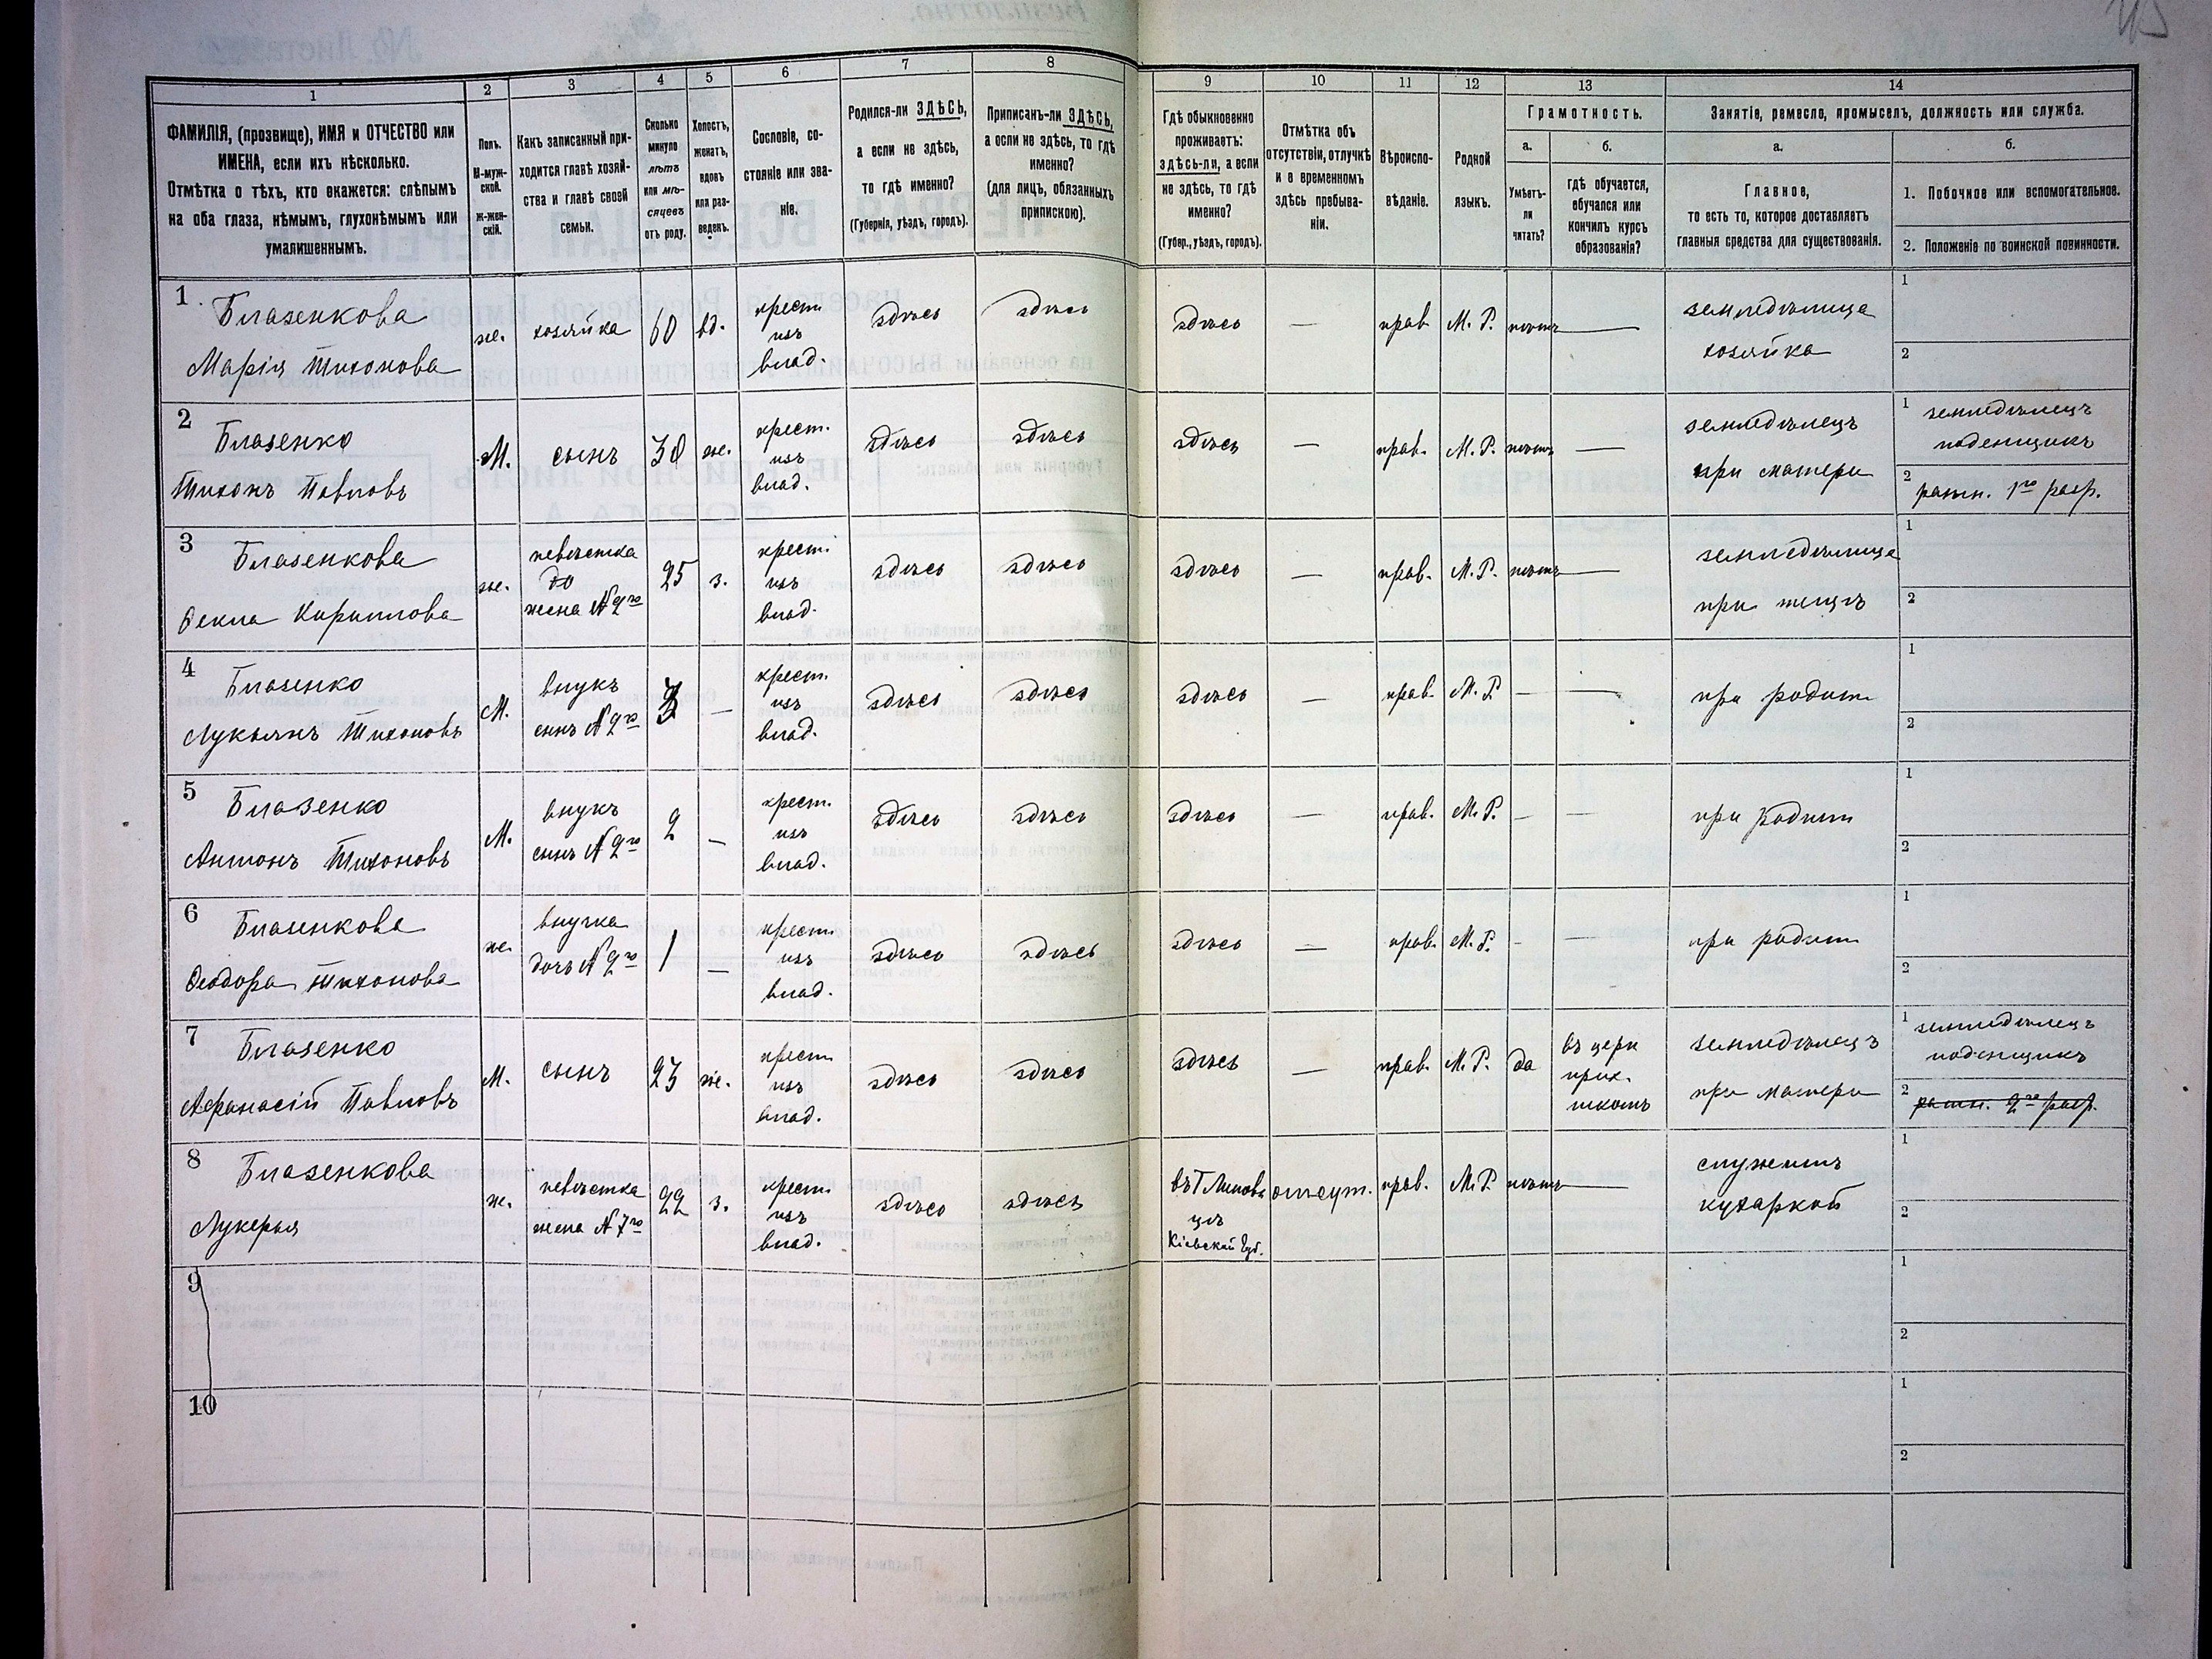 1
2
3
4
5
6
7
8
9
10
11
12
13
14
ФАМИЛІЯ, (прозвище), ИМЯ и ОТЧЕСТВО или
ИМЕНА, если ихъ нѣсколько.
Отмѣтка о тѣхъ, кто окажется: слѣпымъ
на оба глаза, нѣмымъ, глухонѣмымъ или
умалишеннымъ.
Полъ.
М-муж-
ской.
Ж-жен-
скій.
Какъ записанный при-
ходится главѣ хозяй-
ства и главѣ своей
семьи.
Сколько
минуло
лѣтъ
или мѣ-
сяцевъ
отъ роду.
Холостъ,
женатъ,
вдовъ
или раз-
веденъ.
Сословіе, со-
стояніе или зва-
ніе.
Родился-ли ЗДѢСЬ,
а если не здѣсь,
то гдѣ именно?
(Губернія, уѣздъ, городъ).
Приписанъ-ли ЗДѢСЬ,
а если не здѣсь, то гдѣ
именно?
(для лицъ, обязанныхъ
припискою).
Гдѣ обыкновенно
проживаетъ:
здѣсь-ли, а если
не здѣсь, то гдѣ
именно?
(Губер., уѣздъ, городъ).
Отмѣтка объ
отсутствіи, отлучкѣ
и о временномъ
здѣсь пребыва-
ніи.
Вѣроиспо-
вѣданіе.
Родной
языкъ.
Грамотность.
а.
Умѣетъ-
ли
читать?
б.
гдѣ обучается,
обучался или
кончилъ курсъ
образованія?
Занятіе, ремесло, промыселъ, должность или служба.
а.
Главное,
то есть то, которое доставляетъ
главныя средства для существованія.
б.
1. Побочное или вспомогательное.
2. Положеніе по воинской повинности.
1.
Блазенкова
Марія Тихонова
же.
хозяйка
60
вд.
крест.
изъ
влад.
здѣсь
здѣсь
здѣсь
—
прав
М. Р.
нѣтъ
—
земледѣлица
хозяйка
1
2
2
Блазенко
Тихонъ Павловъ
М.
сынъ
30
же.
крест.
изъ
влад.
здѣсь
здѣсь
здѣсь
—
прав.
М. Р.
нѣтъ
—
земледѣлецъ
при матери
1 земледѣлецъ
поденщикъ
2 ратн. 1го разр.
3
Блазенкова
Ѳекла Кириллова
же.
невѣстка
жена №2го
25
з.
крест.
изъ
влад.
здѣсь
здѣсь
здѣсь
—
прав.
М. Р.
нѣтъ
—
земледѣлица
при
1
2
4
Блазенко
Лукьянъ Тихоновъ
М.
внукъ
сынъ №2го
—
крест.
изъ
влад.
здѣсь
здѣсь
здѣсь
—
прав.
М. Р.
—
—
при родит
1
2
5
Блазенко
Антонъ Тихоновъ
М.
внукъ
сынъ №2го
2
—
крест.
изъ
влад.
здѣсь
здѣсь
здѣсь
—
прав.
М. Р.
—
—
при родит
1
2
6
Блазенкова
Ѳеодора Тихонова
же.
внучка
дочь №2го
1
—
крест.
изъ
влад.
здѣсь
здѣсь
здѣсь
—
прав.
М. Р.
-
—
при родит
1
2
7
Блазенко
Афанасій Павловъ
М.
сынъ
23
же.
крест.
изъ
влад.
здѣсь
здѣсь
здѣсь
—
прав.
М. Р.
да
въ церк
прих.
школѣ
земледѣлецъ
при матери
1 земледѣлецъ
поденщикъ
2 ратн. 2го разр.
8
Блазенкова
Лукерья
же.
невѣстка
жена №7го
22
з.
крест.
изъ
влад.
здѣсь
здѣсь
въ Г Липов
цѣ
Кіевской губ.
отсут.
прав.
М. Р.
нѣтъ
—
служитъ
кухаркой
1
2
9
1
2
10
1
2